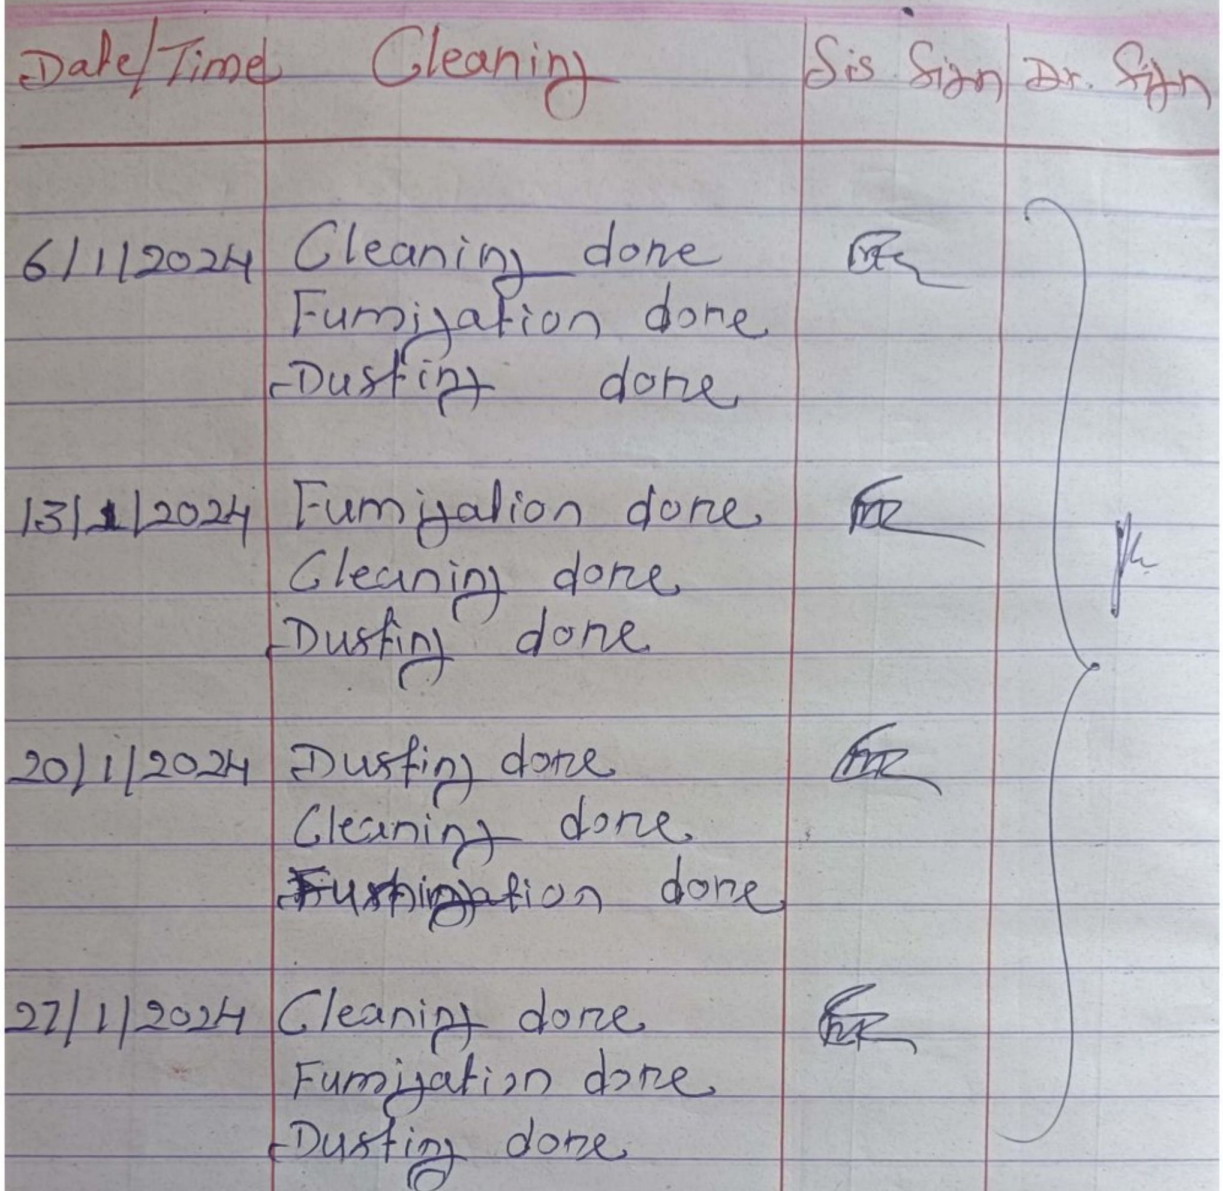 Date/Time Cleaning Sis Sign Dr. Sign
6/1/2024 Cleaning done
Fumigation done
Dusting done
13/1/2024 Fumigation done
Cleaning done
Dusting done
20/1/2024 Dusting done
Cleaning done
Fumigation done
27/1/2024 Cleaning done
Fumigation done
Dusting done